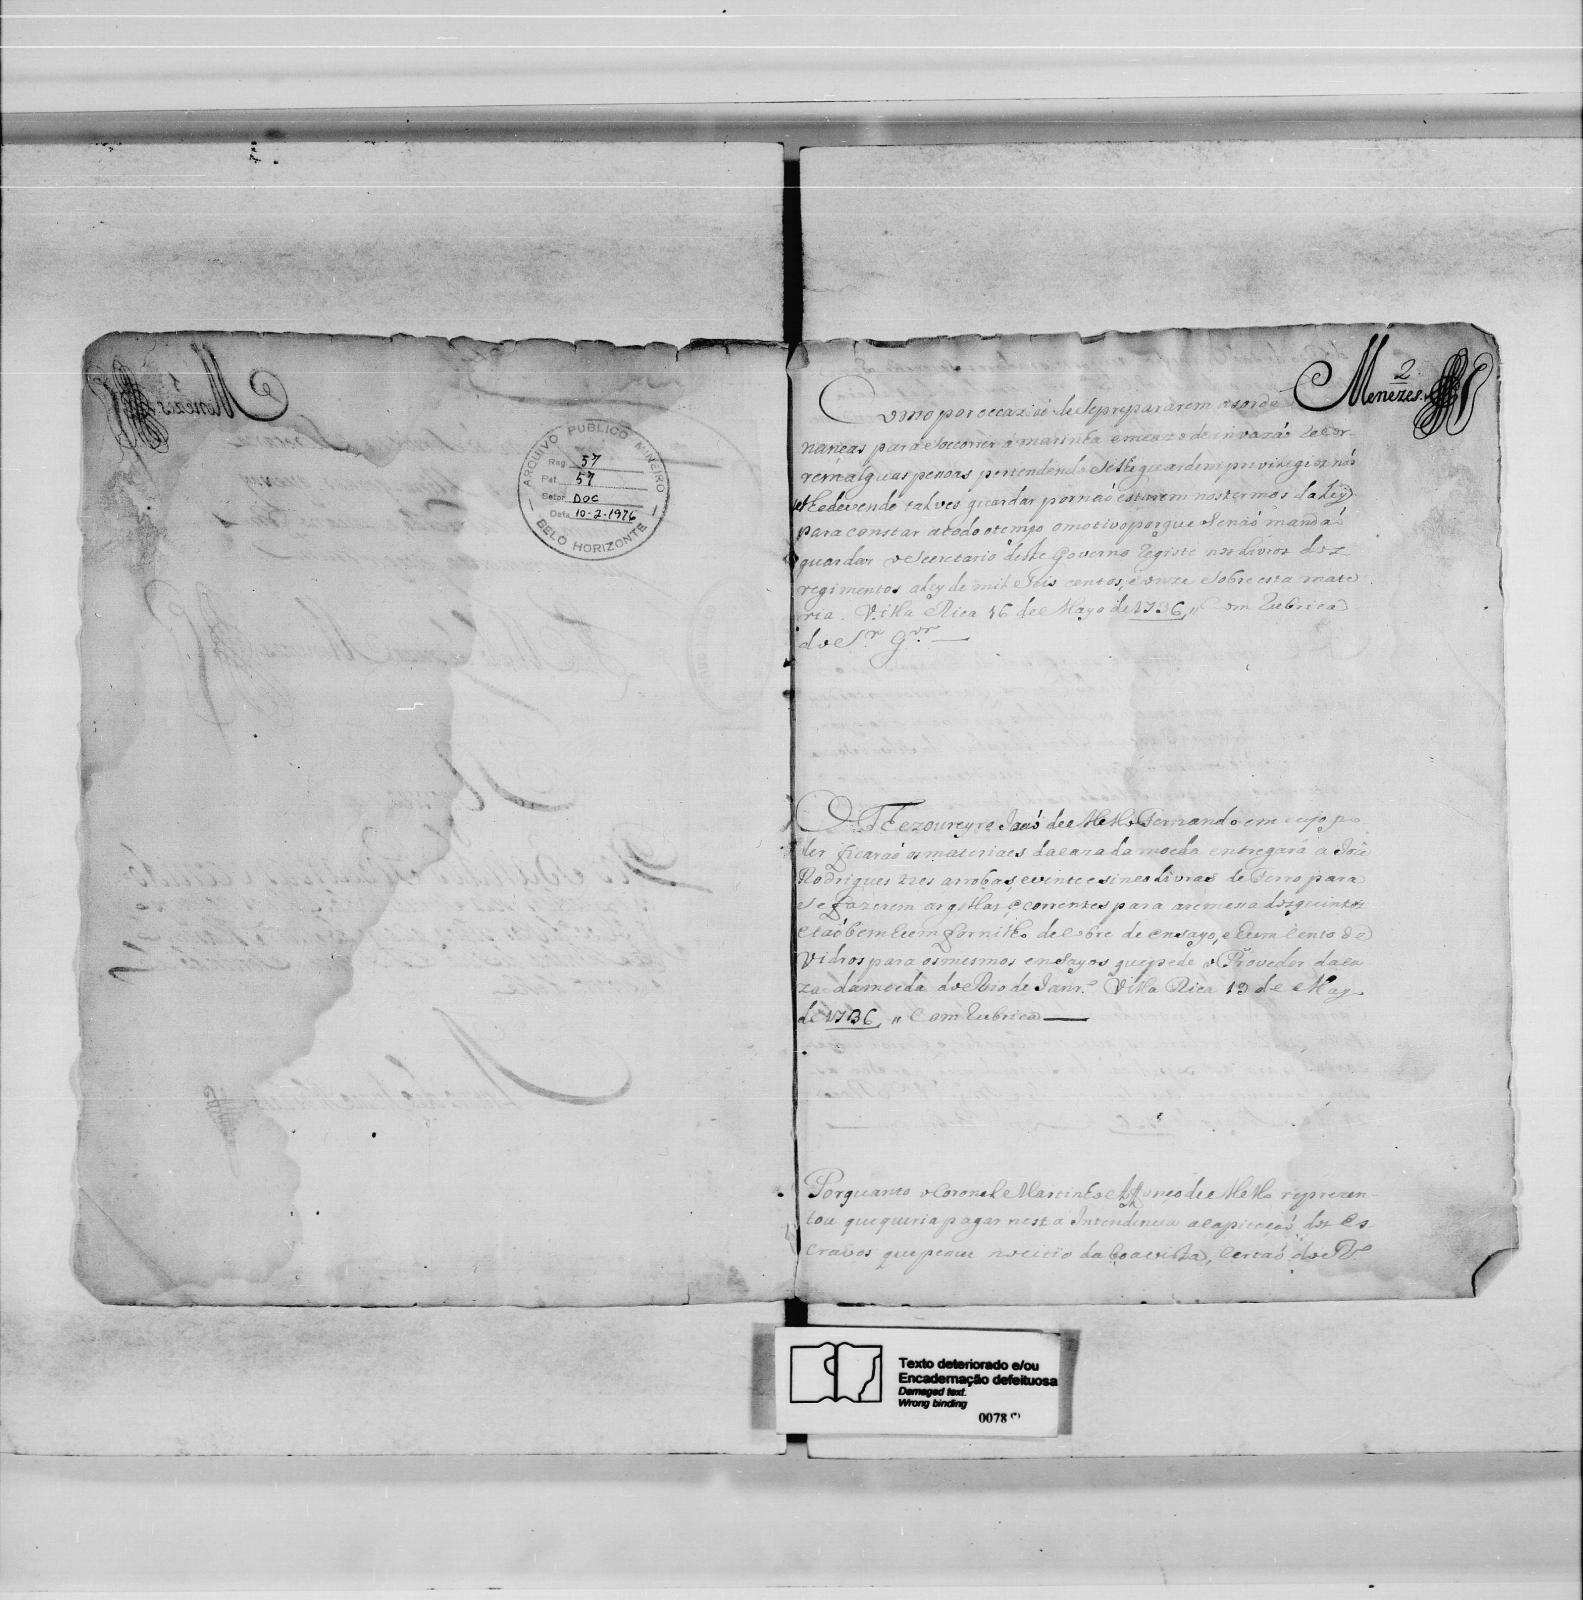 ARQUIVO PUBLICO MINEIRO
Reg. 57
Pat. 57
Setor DOC
Data 10-2-1976
BELO HORIZONTE
2
Menezes
Como por occaziaó de Se prepararem as orde
nancas para Soccorrer a marinha em cazo de invazaó Recor-
rem alguas pessoas pertendendo Se lhe guardem previlegios nós
Se devendo talves guardar por naó estarem nos termos da Ley
para constar a todo o tempo o motivo porque Se naó mandaó
guardar o Secretario deste Governo Registe nos Livros doz
regimentos a Ley de mil e Seis centos, e onze Sobre esta mate
ria. Villa Rica 16 de Mayo de 1736 „ Com Rubrica
do Sr. Gor.
O Thezoureyro Joaó de Mello Fernando em cujo po-
der ficaraó os materiaes da caza da moeda entregará a Joze
Rodrigues tres arrobas, e vinte e sinco livras de ferro para
Se fazerem argollas, e correntes para a remessa dos quintos
e taóbem hum fornilho de cobre de ensayo, e hum cento de
Vidros para os mesmos ensayos que pede o Provedor da ca
za da moeda do Rio de Janro. Villa Rica 19 de May
de 1736 „ Com Rubrica
Porquanto o Coronel Martinho Affonço de Mello reprezen-
tou que queria pagar nesta Intendencia a capitaçaó dos Es
cravos que pessue no citio da boa vista, Certaó do R.o
Texto deteriorado e/ou
Encadernação defeituosa
Damaged text.
Wrong binding
0078 (*)